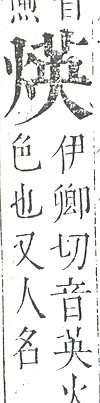 煐
伊卿切音英火
色也又人名